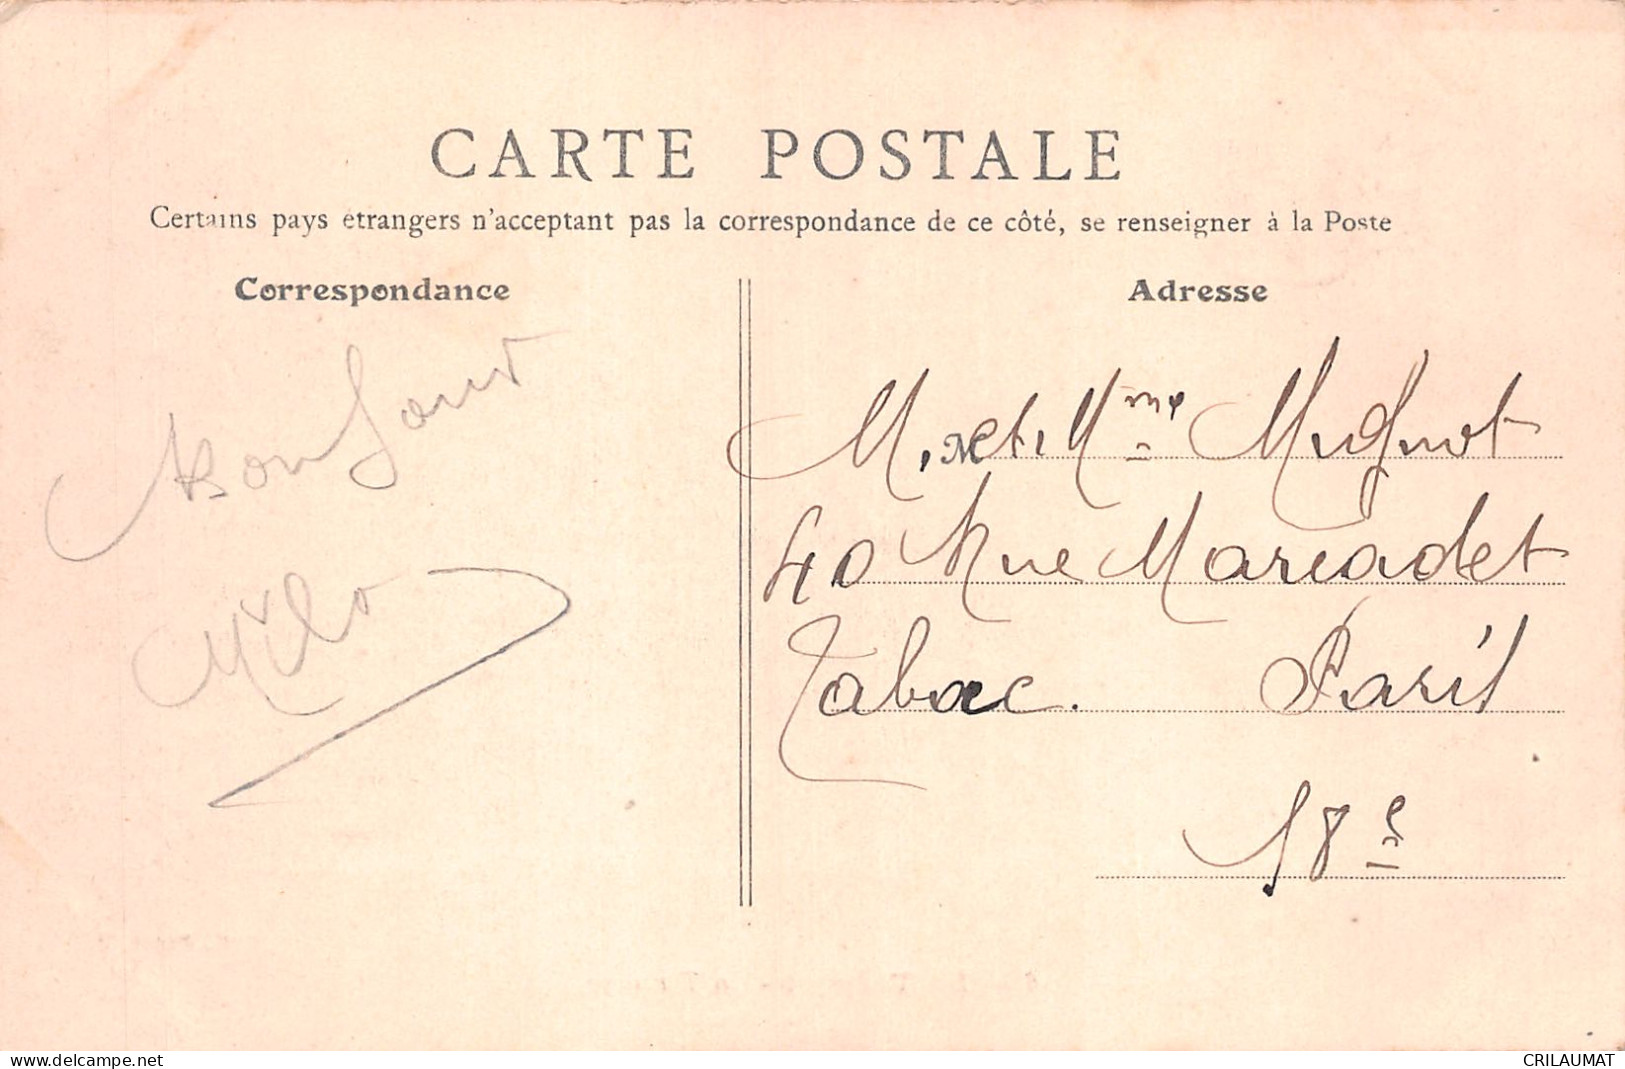 CARTE POSTALE
Certains pays étrangers n'acceptant pas la correspondance de ce côté, se renseigner à la Poste
Correspondance
Adresse
Bonjour
Milo
M. et Mme Mignot
40 Rue Marcadet
Tabac. Paris
18e
www.delcampe.net
CRILAUMAT